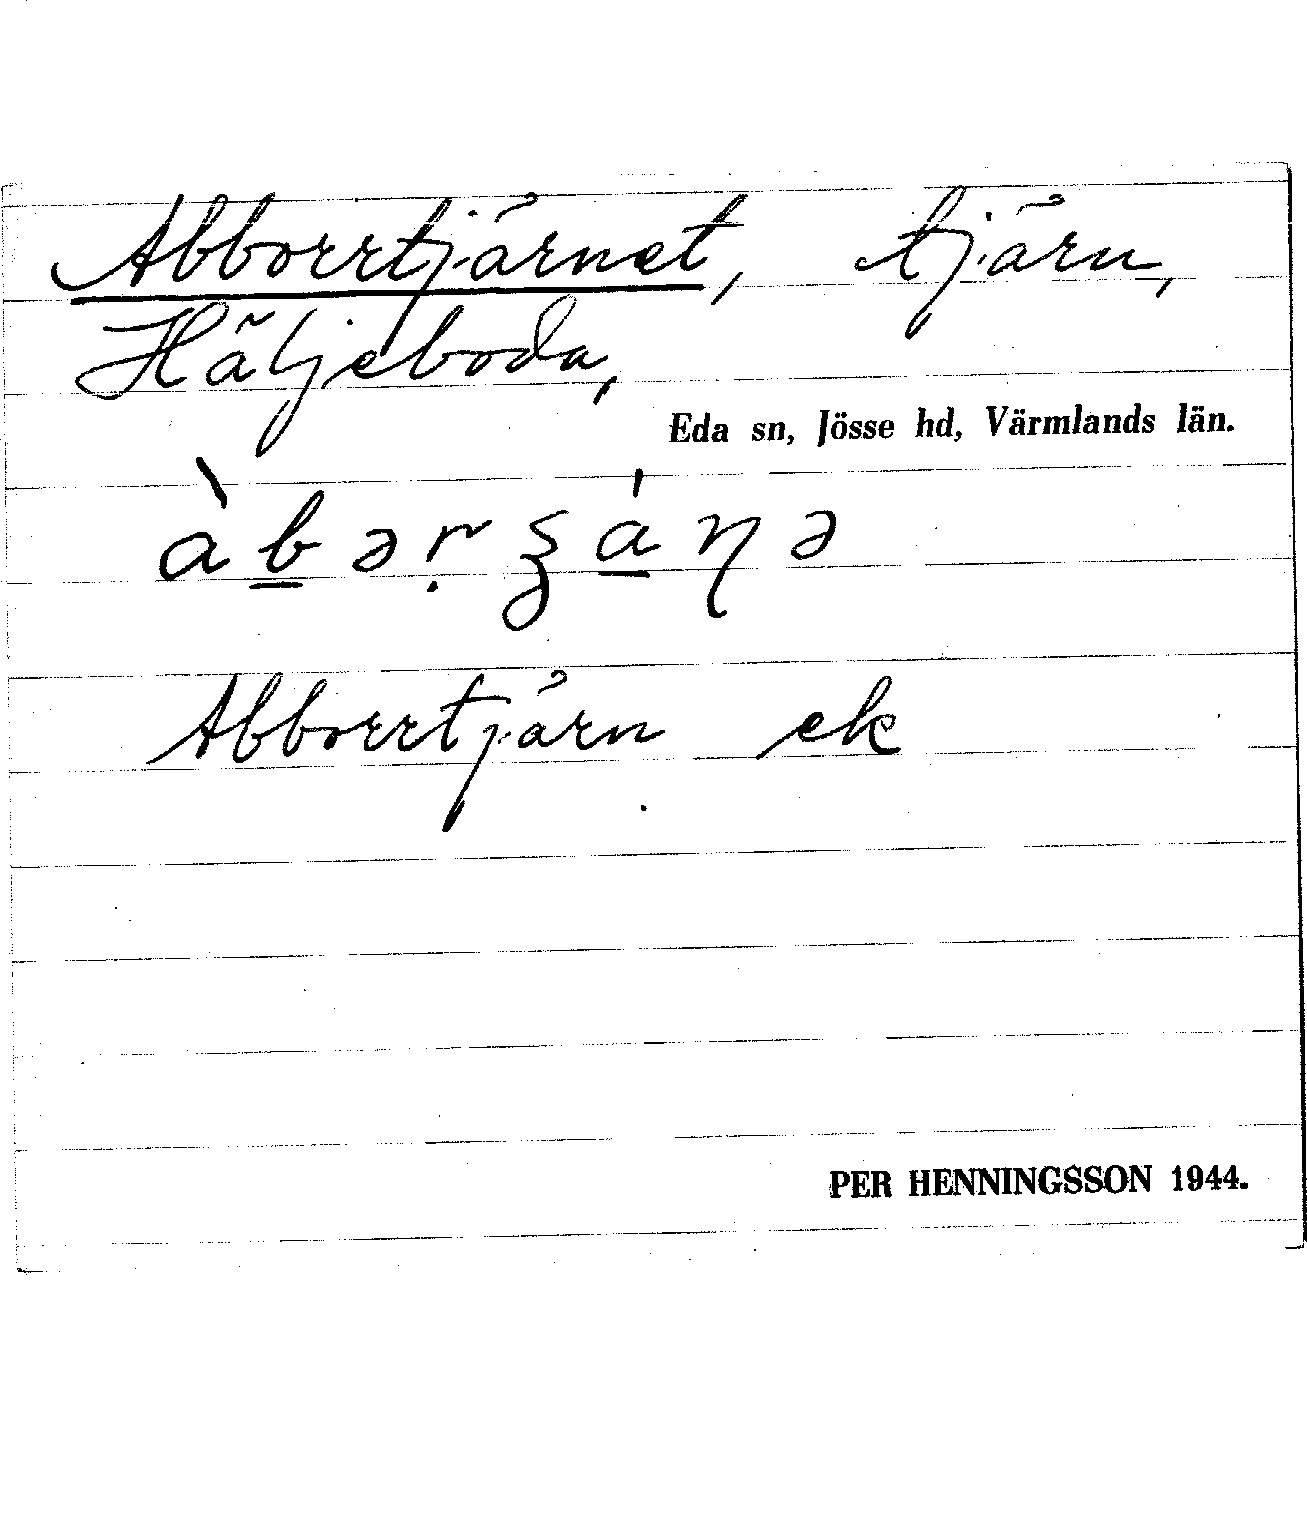 Abborrtjärnet, tjärn,
Häljeboda,
Eda sn, Jösse hd, Värmlands län.
àb̲əṛʒá̲ɳə
Abborrtjärn ek
PER HENNINGSSON 1944.